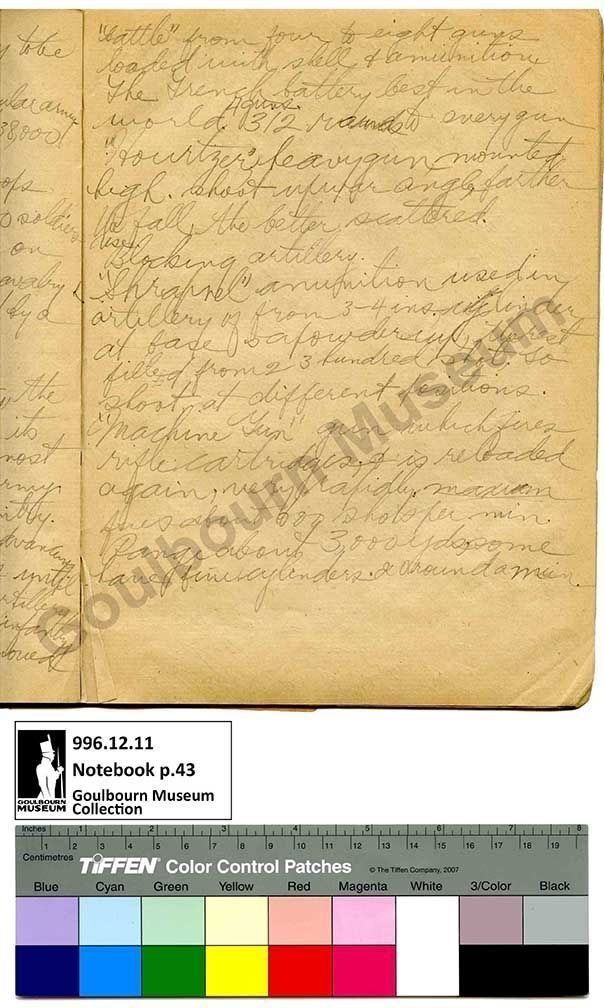 "Battle" from four to eight guns
loaded with shell & amunition
The French battery best in the
world. 4 guns 312 rounds to every gun
"Hourtzer" heavy gun mounted
high. shoot up for angle, farther
the fall, the better scattered.
Use.
Blocking artillery.
"Shrapnel" amunition used in
artillery of from 3-4 ins.
at base is a powder cup, the rest
filled from 2 3 hundred shot. so
shoot at different positions.
"Machine Gun" gun which fires
rifle cartridges & is reloaded
again, very rapidly. maxium
fires about 600 shots per min.
Range about 3,000 yds some
have five cylenders. & around a min.
y to be
38,000
ops
soldiers
on
cavalry
by a
the
its
most
army
try.
advancing
until
artillery
infantry
move
Goulbourn Museum
996.12.11
Notebook p.43
Goulbourn Museum
Collection
GOULBOURN
MUSEUM
Inches 1 2 3 4 5 6 7 8
Centimetres 1 2 3 4 5 6 7 8 9 10 11 12 13 14 15 16 17 18 19
TIFFEN Color Control Patches © The Tiffen Company, 2007
Blue Cyan Green Yellow Red Magenta White 3/Color Black